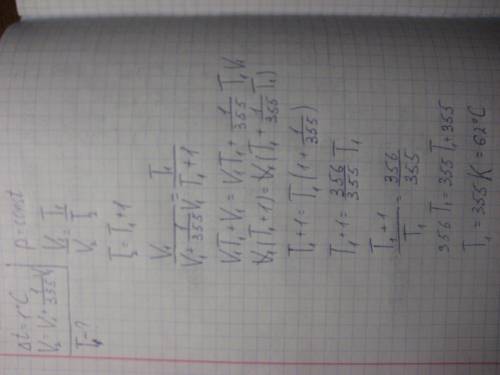 Δt = 1°C
V₂ = V₁ + 1/335 V₁
T₁ - ?
p = const
V₁/V₂ = T₁/T₂
T₂ = T₁ + 1
V₁/(V₁ + 1/355 V₁) = T₁/(T₁ + 1)
V₁T₁ + V₁ = V₁T₁ + 1/355 T₁V₁
V₁(T₁ + 1) = V₁(T₁ + 1/355 T₁)
T₁ + 1 = T₁(1 + 1/355)
T₁ + 1 = 356/355 T₁
(T₁ + 1)/T₁ = 356/355
356 T₁ = 355 T₁ + 355
T₁ = 355 K = 62°C